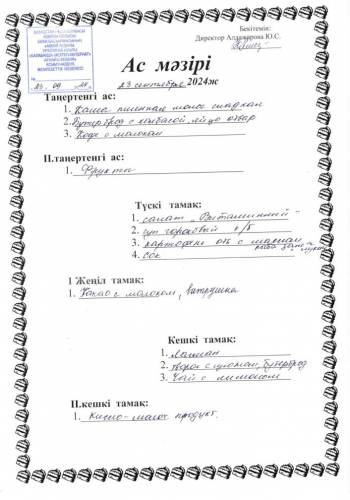 Бекітемін:
Директор Алдажарова Ю.С.
Ас мәзірі
23 сентября 2024ж
Таңертеңгі ас:
1. Каша пшенная молоч сладкая
2. Бутерброд с колбасой, яйцо отвар
3. Кофе с молоком
ІІ.таңертеңгі ас:
1. Фрукты
Түскі тамақ:
1. салат "Витаминный"
2. суп гороховый к/б
3. картофель отв с маслом
рыба
4. сок
1 Жеңіл тамақ:
1. Какао с молоком, ватрушка
Кешкі тамақ:
1. Лагман
2. творог с изюмом, бутерброд
3. Чай с лимоном
ІІ.кешкі тамақ:
1. Кисло-молоч продукт.